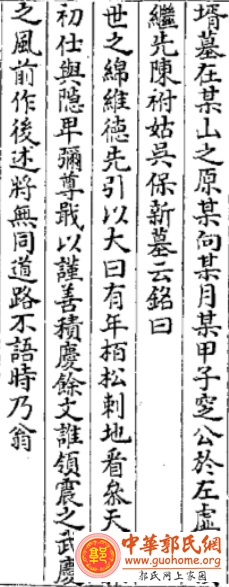 壻墓在某山之原某向某月某甲子窆公於左虛
繼先陳祔姑吳保新墓云銘曰
世之綿維德先引以大曰有年栢松刺地看參天
初仕與隱卑彌尊戢以謹善積慶餘文誰領震之武慶
之風前作後述將無同道路不語時乃翁
中華郭氏網
www.guohome.org
郭氏网上家园